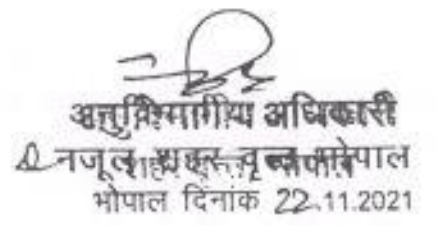 अनुविभागीय अधिकारी
नजूल शहर वृत्त भोपाल
भोपाल दिनांक 22.11.2021